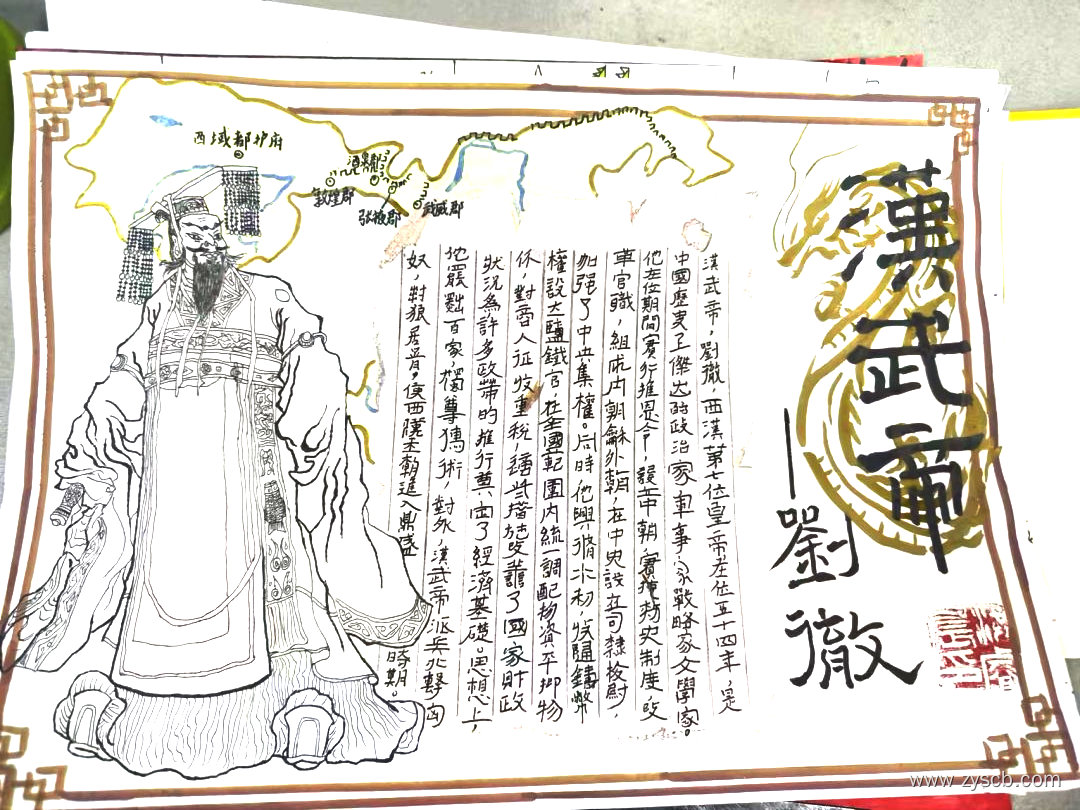 漢武帝
劉徹
漢武帝，劉徹，西漢第七位皇帝在位五十四年，是
中國歷史上傑出的政治家軍事家戰略家文學家。
他在位期間實行推恩令，設立中朝實施刺史制度改
革官職，組成內朝龢外朝，在中央設立司隸校尉，
加強了中央集權。同時他興脩水利，收歸鑄幣
權設立鹽鐵官，在全國範圍內統一調配物資平抑物
价，對商人征收重稅，諸些措施改善了國家財政
狀況為許多政策的推行奠定了經濟基礎。思想上，
他罷黜百家，獨尊儒術，對外，漢武帝派兵北擊匈
奴，封狼居胥，使西漢王朝進入鼎盛時期。
西域都护府
酒泉郡
敦煌郡
張掖郡
武威郡
www.zyscb.com